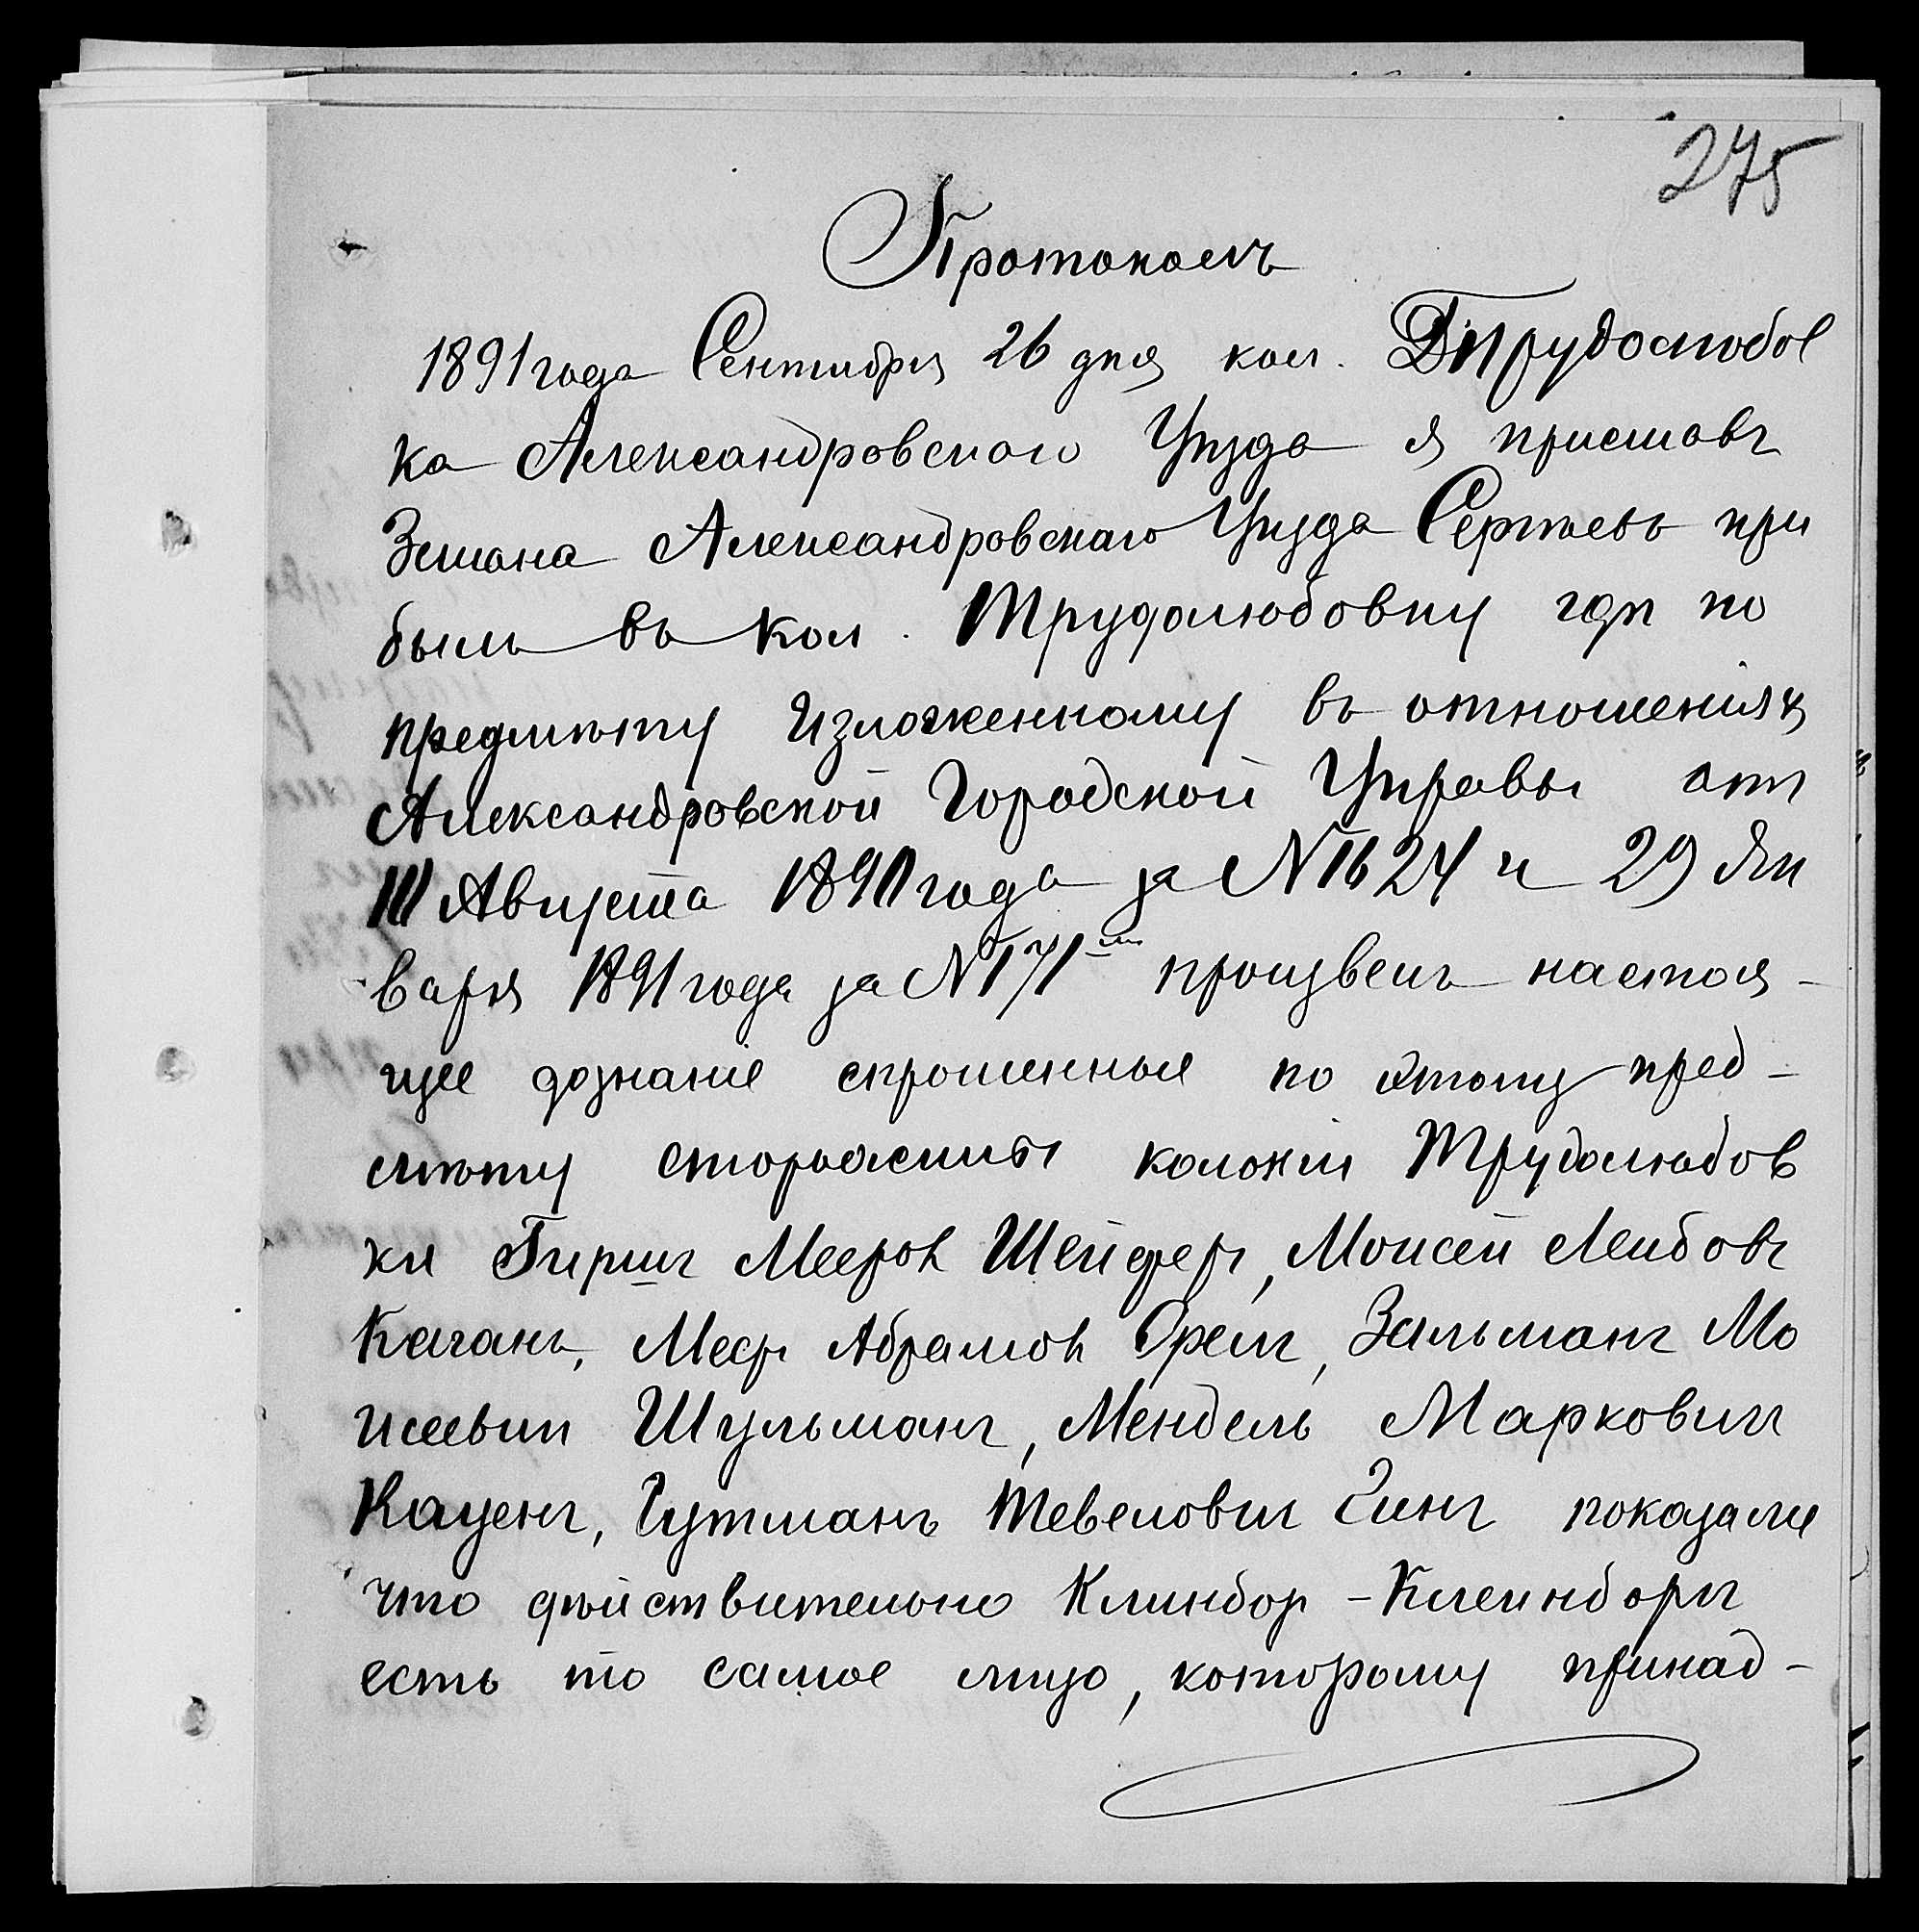 275
Протоколъ
1891 года Сентября 26 дня кол. Трудолюбов
ка Александровскаго Уѣзда я приставъ
3 стана Александровскаго Уѣзда Сергѣевъ при
былъ въ кол. Трудолюбовку гдѣ по
предмѣту изложенному въ отношеніяхъ
Александровской Городской Управы отъ
Августа 1890 года за № 1624 и 29 Ян
варя 1891 года за № 171 произвелъ настоя-
щее дознаніе спрошенные по этому пред-
мѣту старожилы колоніи Трудолюбов
ки Гиршъ Мееровъ Шейферъ, Моисей Лейбовъ
Каганъ, Меер Абрамовъ Орелъ, Зальманъ Мо
исеевич Шульманъ, Мендель Маркович
Каценъ, Гутманъ Тевелович Гинъ показали
что дѣйствительно Клинбор - Клейнборъ
есть то самое лицо, которому принад-